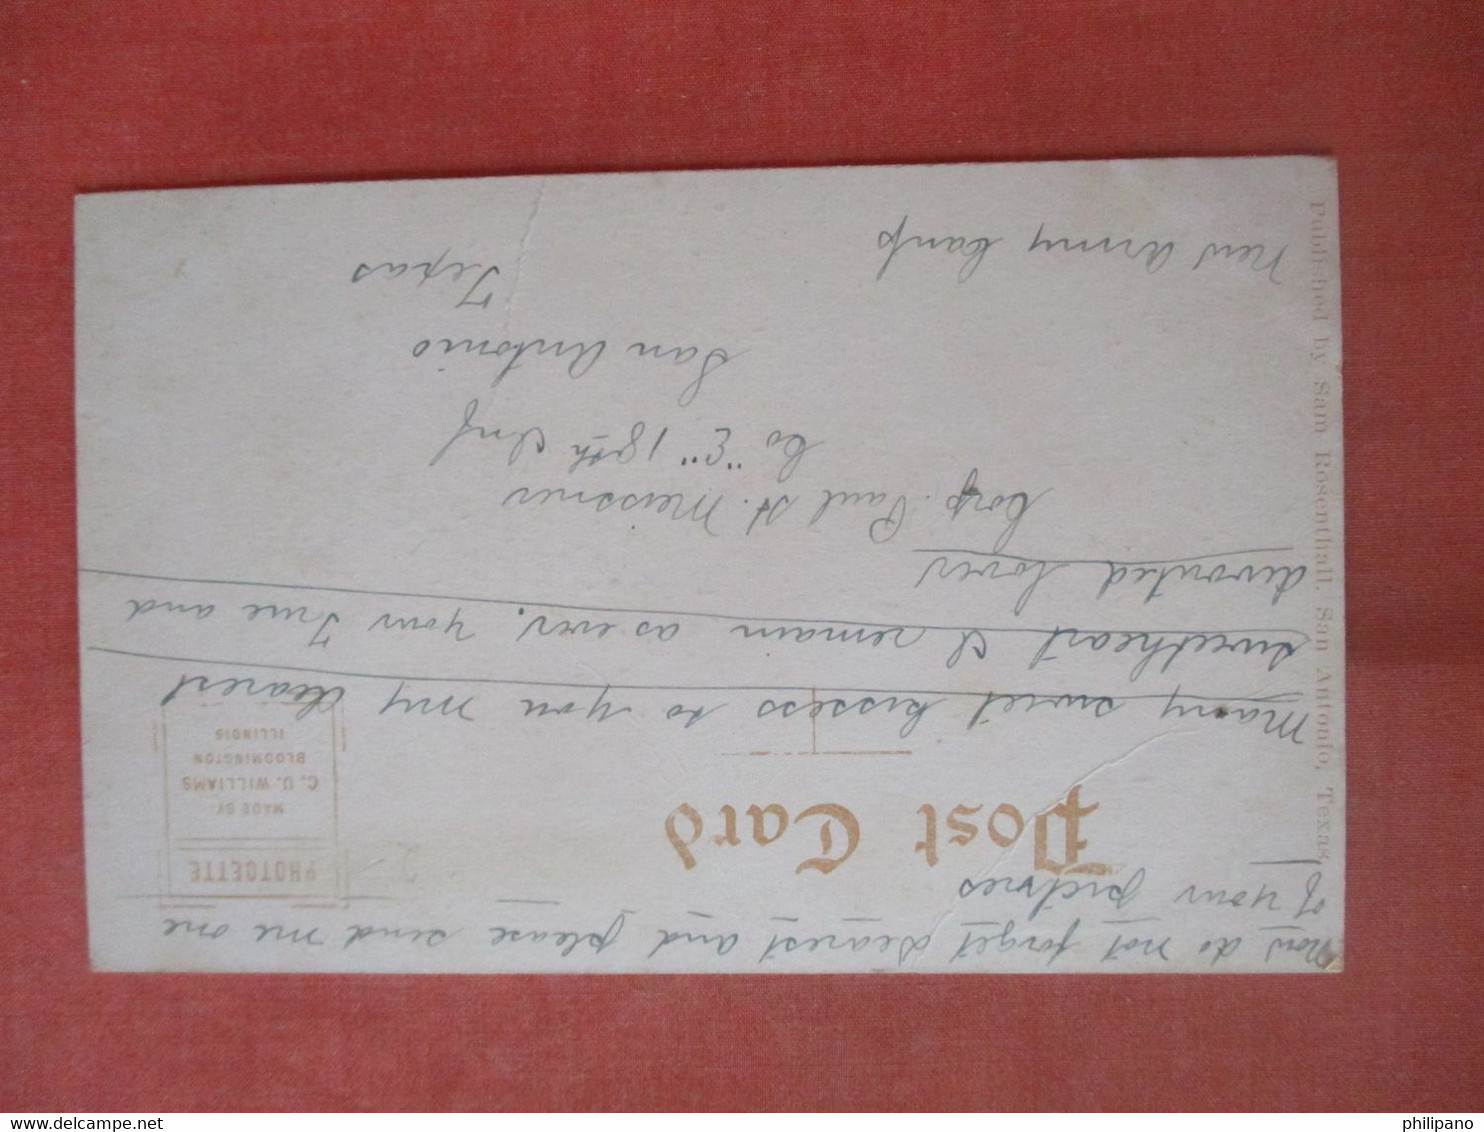 Now do not forget dearest and please send me one
of your pictures
Post Card
PHOTOETTE
MADE BY
C. U. WILLIAMS
BLOOMINGTON
ILLINOIS
Many sweet kisses to you my dearest
sweetheart I remain as ever, your True and
devouted lover
Corp. Paul H. Meissner
Co "E" 18th Inf
San Antonio
Texas
New Army Camp
Published by Sam Rosenthall, San Antonio, Texas
www.delcampe.net
philipano